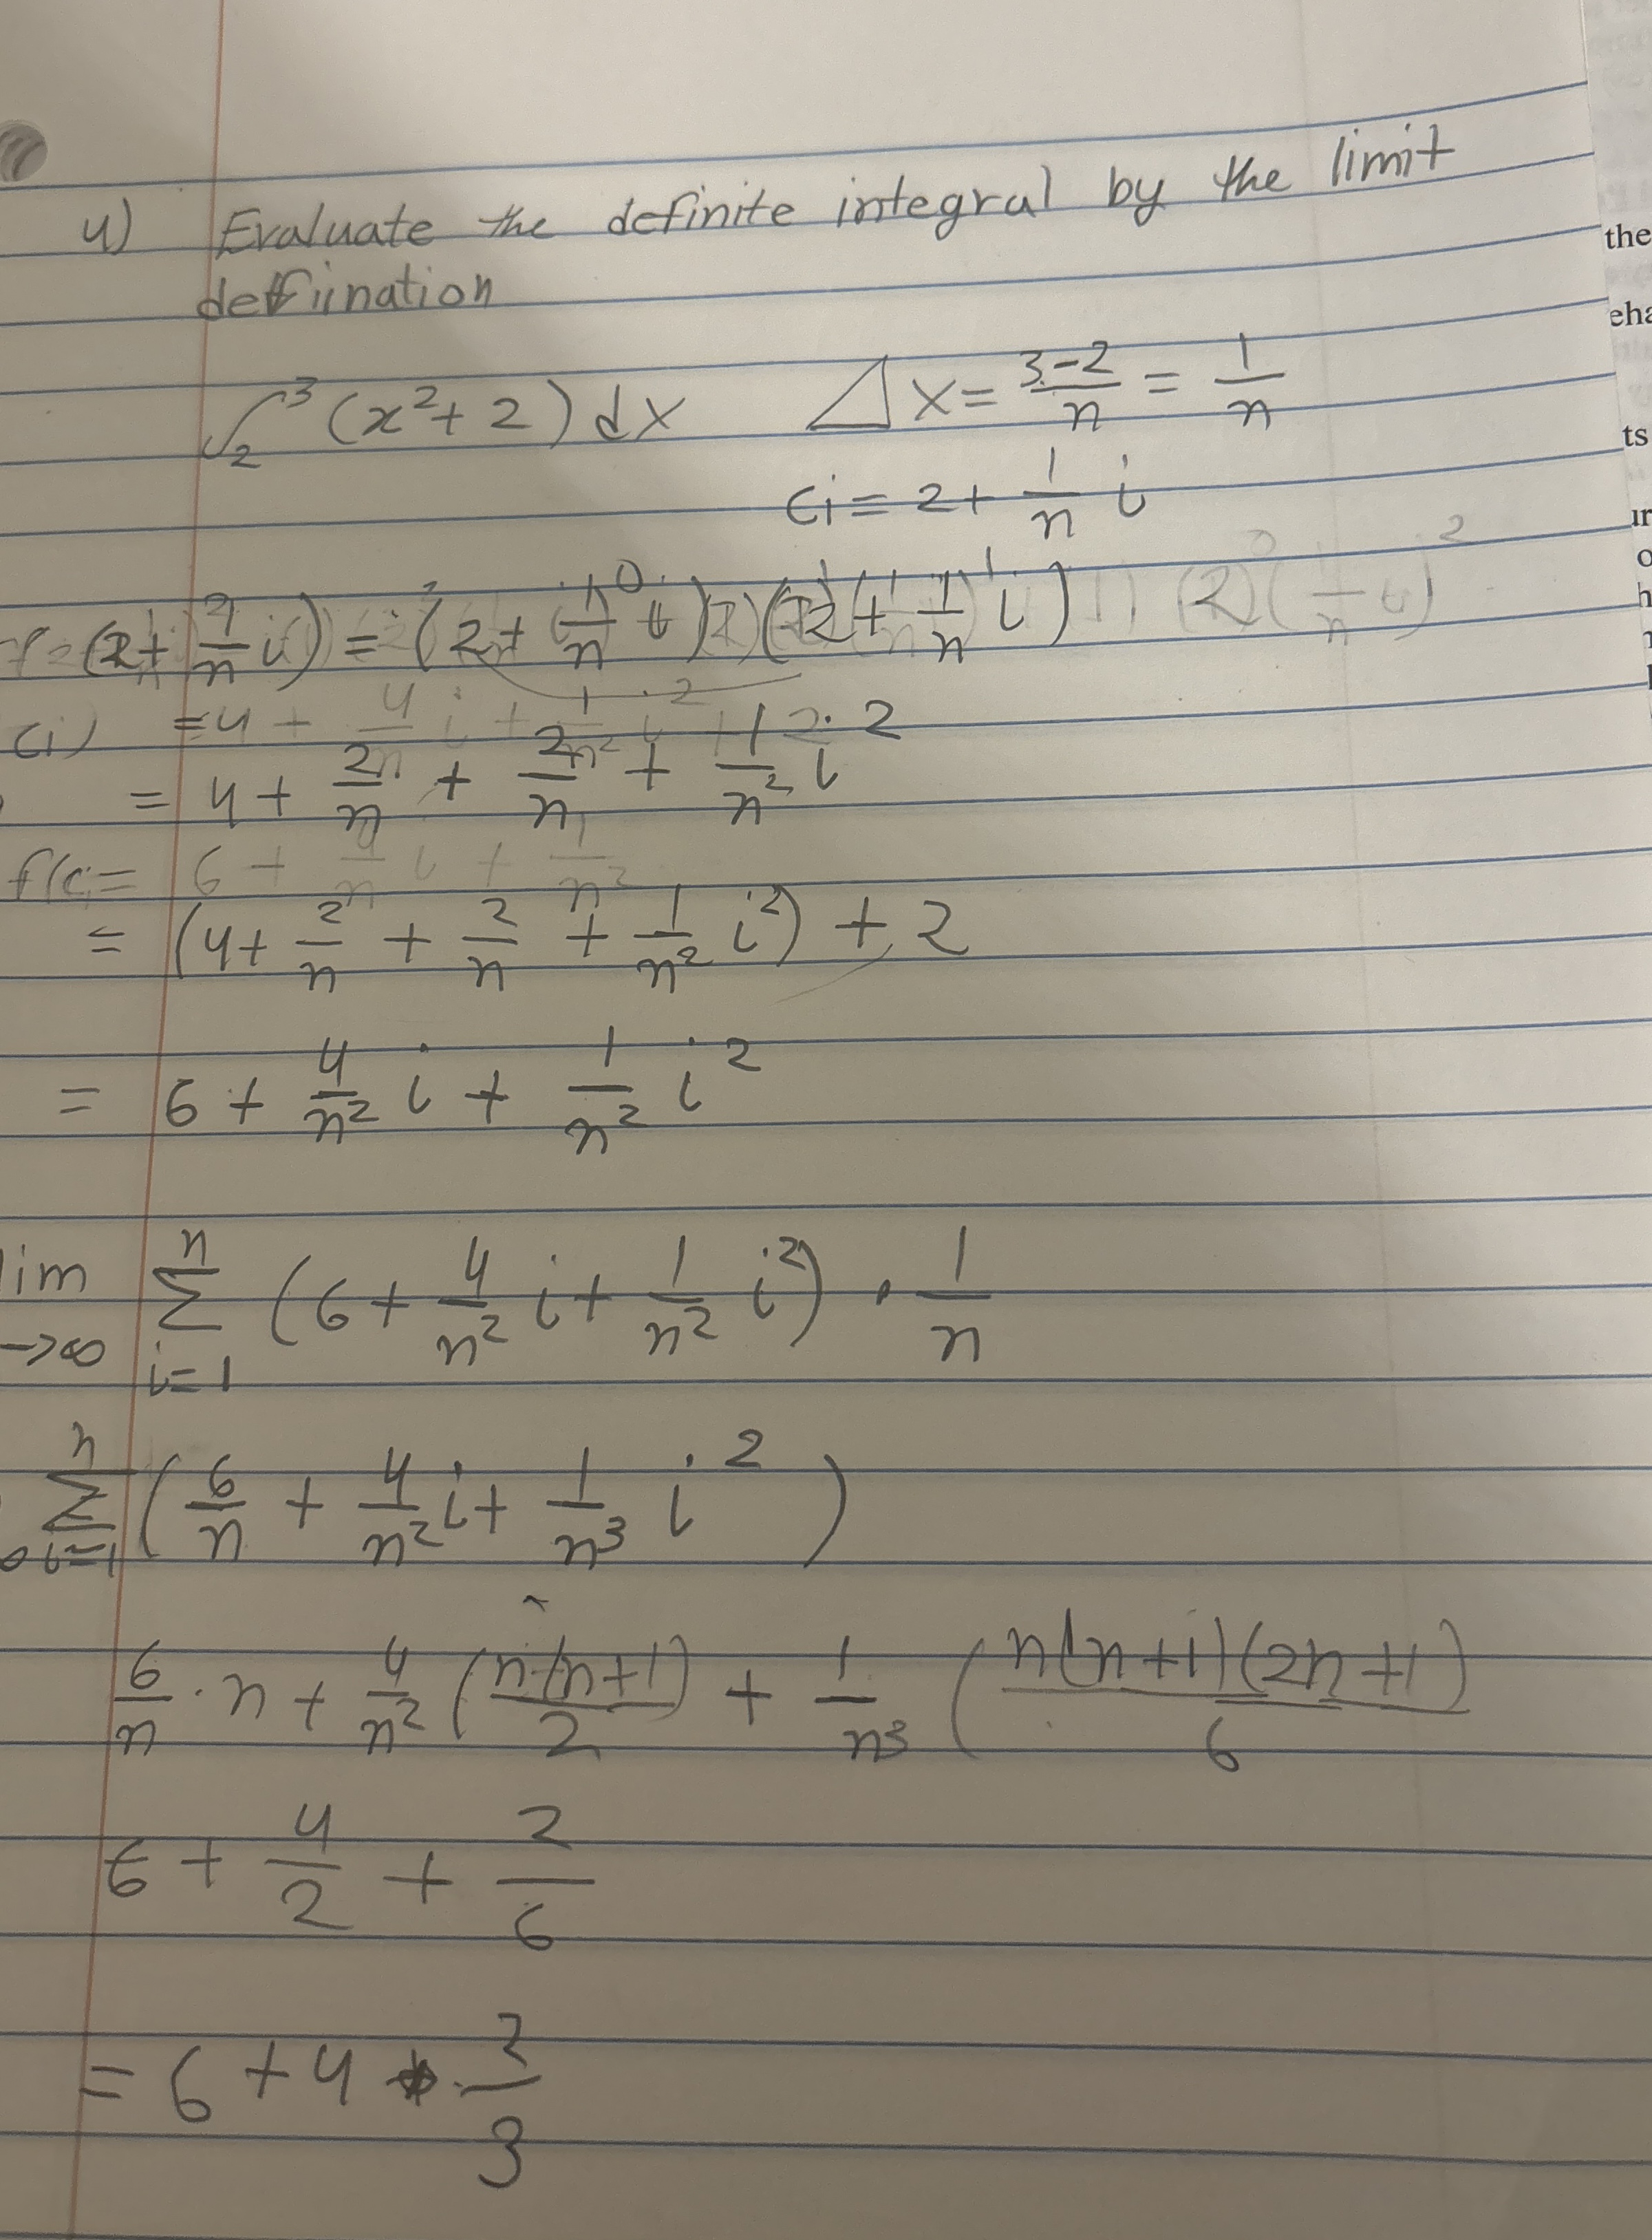 4) Evaluate the definite integral by the limit
deffiination
∫₂³ (x²+2) dx △x = 3-2/n = 1/n
ci = 2 + 1/n i
(2 + 1/n i) = (2 + 1/n i)(2 + 1/n i)
ci) = 4 + 4/n i +
= 4 + 2/n + 2/n + 1/n² i²
f(c = 6 + 4/n i + 1/n²
= (4 + 2/n + 2/n + 1/n² i²) + 2
= 6 + 4/n² i + 1/n² i²
lim →∞ n Σ i=1 (6 + 4/n² i + 1/n² i²) · 1/n
n Σ i=1 (6/n + 4/n² i + 1/n³ i²)
6/n · n + 4/n² (n(n+1)/2) + 1/n³ (n(n+1)(2n+1)/6)
6 + 4/2 + 2/6
= 6 + 4
the
eha
ts
ur
o
h